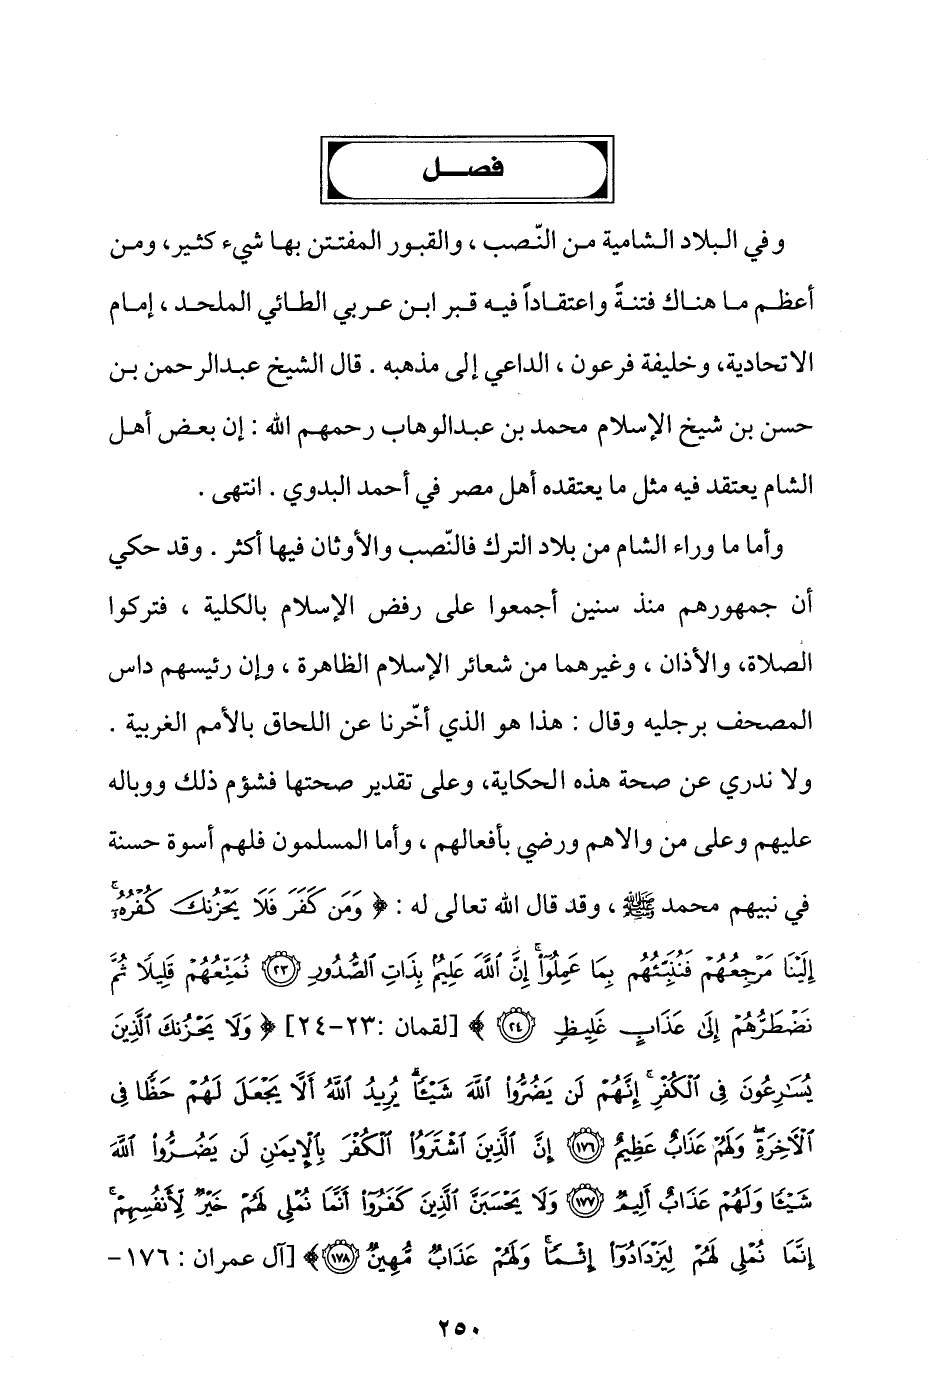 فصـــل
وفي الـبلاد الـشامية مـن النّـصب ، والقبـور المفتـتن بهـا شيء كثـير، ومـن
أعظـم مـا هنـاك فتنـةً واعتقـاداً فيـه قـبر ابـن عـربي الطـائي الملحـد ، إمـام
الاتحادية، وخليفة فرعون ، الداعي إلى مذهبه . قال الشيخ عبدالرحمن بـن
حسن بن شيخ الإسلام محمد بن عبدالوهاب رحمهـم الله : إن بعـض أهـل
الشام يعتقد فيه مثل ما يعتقده أهل مصر في أحمد البدوي . انتهى .
وأما ما وراء الشام من بلاد الترك فالنّصب والأوثان فيها أكثر . وقد حكي
أن جمهورهم منذ سنين أجمعوا على رفض الإسلام بالكلية ، فتركوا
الصلاة، والأذان ، وغيرهما من شعائر الإسلام الظاهرة ، وإن رئيسهم داس
المصحف برجليه وقال : هذا هو الذي أخّرنا عن اللحاق بالأمم الغربية .
ولا ندري عن صحة هذه الحكاية، وعلى تقدير صحتها فشؤم ذلك ووباله
عليهم وعلى من والاهم ورضي بأفعالهم ، وأما المسلمون فلهم أسوة حسنة
في نبيهم محمد ﷺ ، وقد قال الله تعالى له : ﴿ وَمَن كَفَرَ فَلَا يَحْزُنكَ كُفْرُهُۥٓ ۚ
إِلَيْنَا مَرْجِعُهُمْ فَنُنَبِّئُهُم بِمَا عَمِلُوٓا۟ ۚ إِنَّ ٱللَّهَ عَلِيمٌۢ بِذَاتِ ٱلصُّدُورِ ۝٢٣ نُمَتِّعُهُمْ قَلِيلًا ثُمَّ
نَضْطَرُّهُمْ إِلَىٰ عَذَابٍ غَلِيظٍ ۝٢٤ ﴾ [لقمان :٢٣-٢٤] ﴿ وَلَا يَحْزُنكَ ٱلَّذِينَ
يُسَـٰرِعُونَ فِى ٱلْكُفْرِ ۚ إِنَّهُمْ لَن يَضُرُّوا۟ ٱللَّهَ شَيْـًٔا ۗ يُرِيدُ ٱللَّهُ أَلَّا يَجْعَلَ لَهُمْ حَظًّا فِى
ٱلْـَٔاخِرَةِ ۖ وَلَهُمْ عَذَابٌ عَظِيمٌ ۝١٧٦ إِنَّ ٱلَّذِينَ ٱشْتَرَوُا۟ ٱلْكُفْرَ بِٱلْإِيمَـٰنِ لَن يَضُرُّوا۟ ٱللَّهَ
شَيْـًٔا وَلَهُمْ عَذَابٌ أَلِيمٌ ۝١٧٧ وَلَا يَحْسَبَنَّ ٱلَّذِينَ كَفَرُوٓا۟ أَنَّمَا نُمْلِى لَهُمْ خَيْرٌ لِّأَنفُسِهِمْ ۚ
إِنَّمَا نُمْلِى لَهُمْ لِيَزْدَادُوٓا۟ إِثْمًا ۚ وَلَهُمْ عَذَابٌ مُّهِينٌ ۝١٧٨﴾ [آل عمران : ١٧٦-
٢٥٠